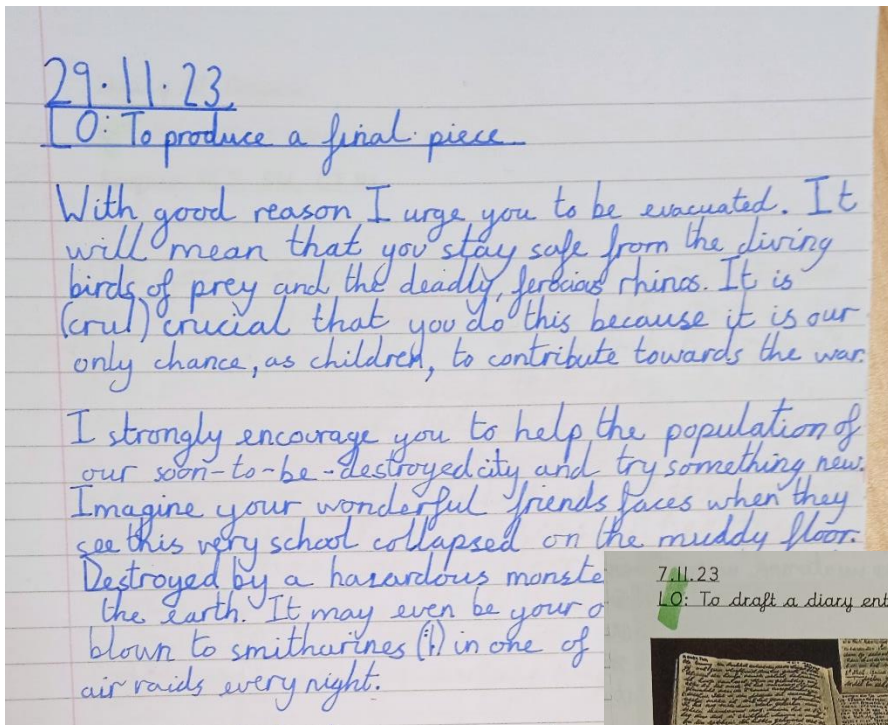 29.11.23
LO: To produce a final piece
With good reason I urge you to be evacuated. It
will mean that you stay safe from the diving
birds of prey and the deadly, ferocias rhinos. It is
(crul) crucial that you do this because it is our
only chance, as children, to contribute towards the war.
I strongly encourage you to help the population of
our soon-to-be-destroyed city and try something new.
Imagine your wonderful friends faces when they
see this very school collapsed on the muddy floor.
Destroyed by a hazardous monste
the earth. It may even be your o
blown to smitharines (i) in one of
air raids every night.
7.11.23
LO: To draft a diary ent